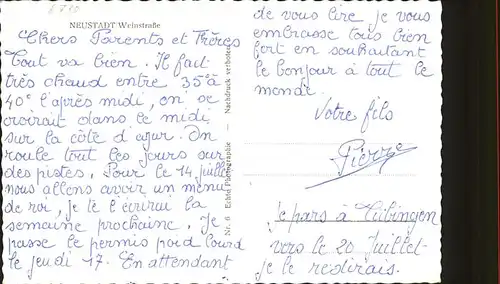 NEUSTADT Weinstraße
Chers Parents et Frères
Tout va bien. Il fait
très chaud entre 35° à
40° l'après midi, on se
croirait dans le midi
sur la côte d'azur. On
roule tout les jours sur
des pistes. Pour le 14 juillet
nous allons avoir un menu
de roi, je te l'écrirai la
semaine prochaine. Je
passe le permis poid lourd
le jeudi 17. En attendant
Nr. 6 Echte Photographie — Nachdruck verboten
de vous lire je vous
embrasse tous bien
fort en souhaitant
le bonjour à tout le
monde.
Votre fils
Pierre
je pars à Tübingen
vers le 20 Juillet
je le redirais.